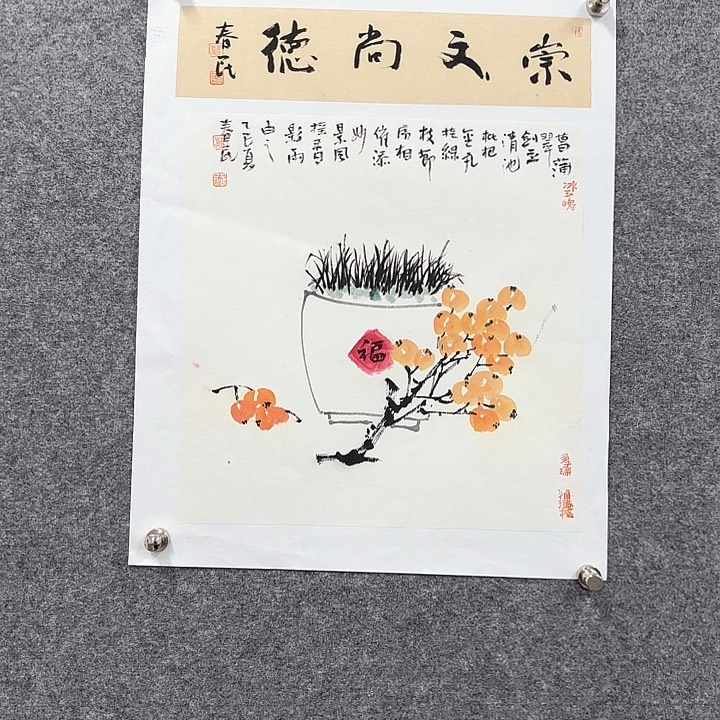 崇文尚德
春民
菖蒲
翠
剑立
清池
枇杷
金丸
挂绿
枝節
相
催添
妙
景风
摇香
影雨
由之
乙巳夏
春民
福